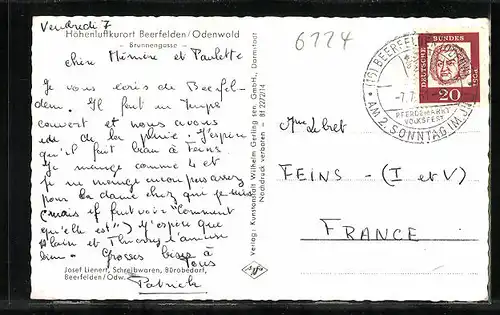 Vendredi 7
Höhenluftkurort Beerfelden/Odenwald
– Brunnengasse –
6224
chère Mémère et Paulette
Je vous écris de Beerfel-
den. Il fait un temps
couvert et nous avons
de la pluie. J'espère
qu'il fait beau à Feins.
Je mange comme 4 et
je ne mange encore pas assez
pour la dame chez qui je suis
(mais il faut voir comment
qu'elle est") J'espère que
Alain et Thierry s'amuse
bien. Grosses bises à
tous
Patrick
Josef Lienert, Schreibwaren, Bürobedarf,
Beerfelden/Odw.
Verlag: Kunstanstalt Wilhelm Gerling sen. GmbH., Darmstadt
Nachdruck verboten – Bf 2272/14
Agfa
(16) BEERFELDEN
-7.7.
PFERDEMARKT
VOLKSFEST
AM 2. SONNTAG IM JULI
DEUTSCHE BUNDESPOST
20
Mme Lebret
FEINS - (I et V)
FRANCE